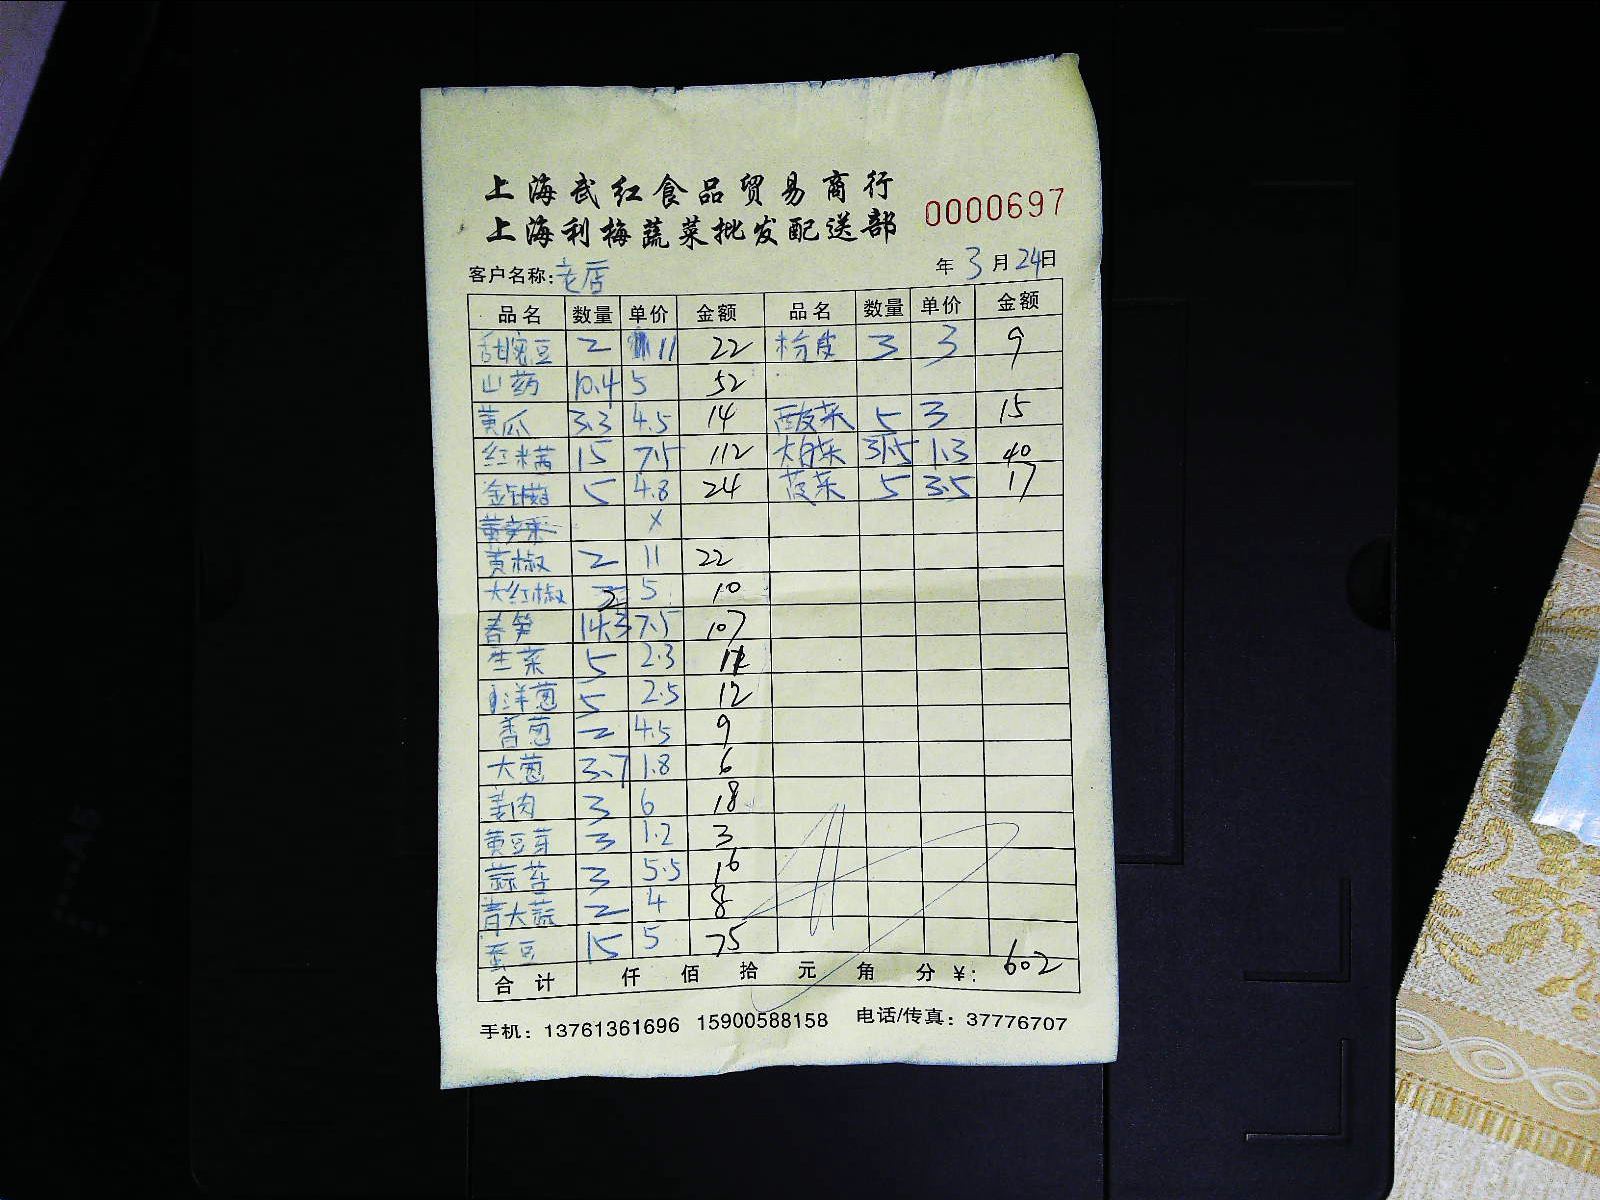 上海武红食品贸易商行
上海利梅蔬菜批发配送部
0000697
客户名称:老店 年3月24日
品名 数量 单价 金额 品名 数量 单价 金额
甜豌豆 2 11 22 粉皮 3 3 9
山药 10.4 5 52
黄瓜 3.3 4.5 14 酸菜 5 3 15
红米苋 15 7.5 112 大白菜 31.5 1.3 40
金针菇 5 4.8 24 菠菜 5 3.5 17
x
黄椒 2 11 22
大红椒 2 5 10
春笋 14.3 7.5 107
生菜 5 2.3 11
洋葱 5 2.5 12
香葱 2 4.5 9
大葱 3.7 1.8 6
姜肉 3 6 18
黄豆芽 3 1.2 3
蒜苔 3 5.5 16
青大蒜 2 4 8
蚕豆 15 5 75
合计 仟 佰 拾 元 角 分 ¥: 602
手机: 13761361696 15900588158 电话/传真: 37776707